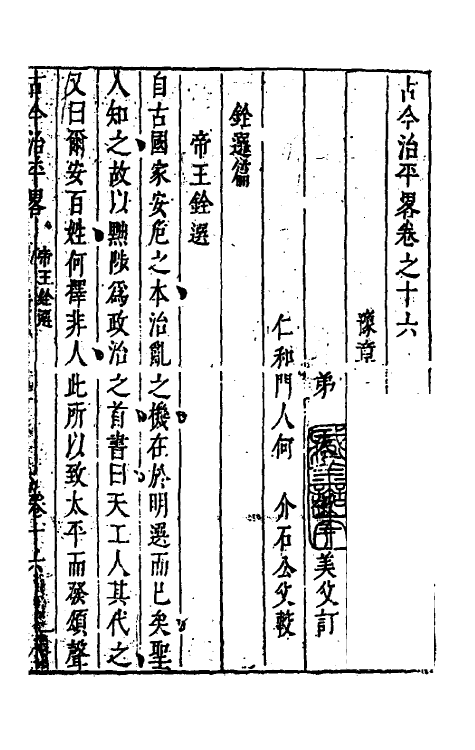 古今治平畧卷之十六
豫章
弟
美父訂
仁和門人何　介石公父較
銓選篇
帝王銓選
自古國家安危之本治亂之機在於明選而已矣聖
人知之故以黜陟爲政治之首書曰天工人其代之
又曰爾安百姓何擇非人此所以致太平而發頌聲
古今治平畧　帝王銓選　卷十六